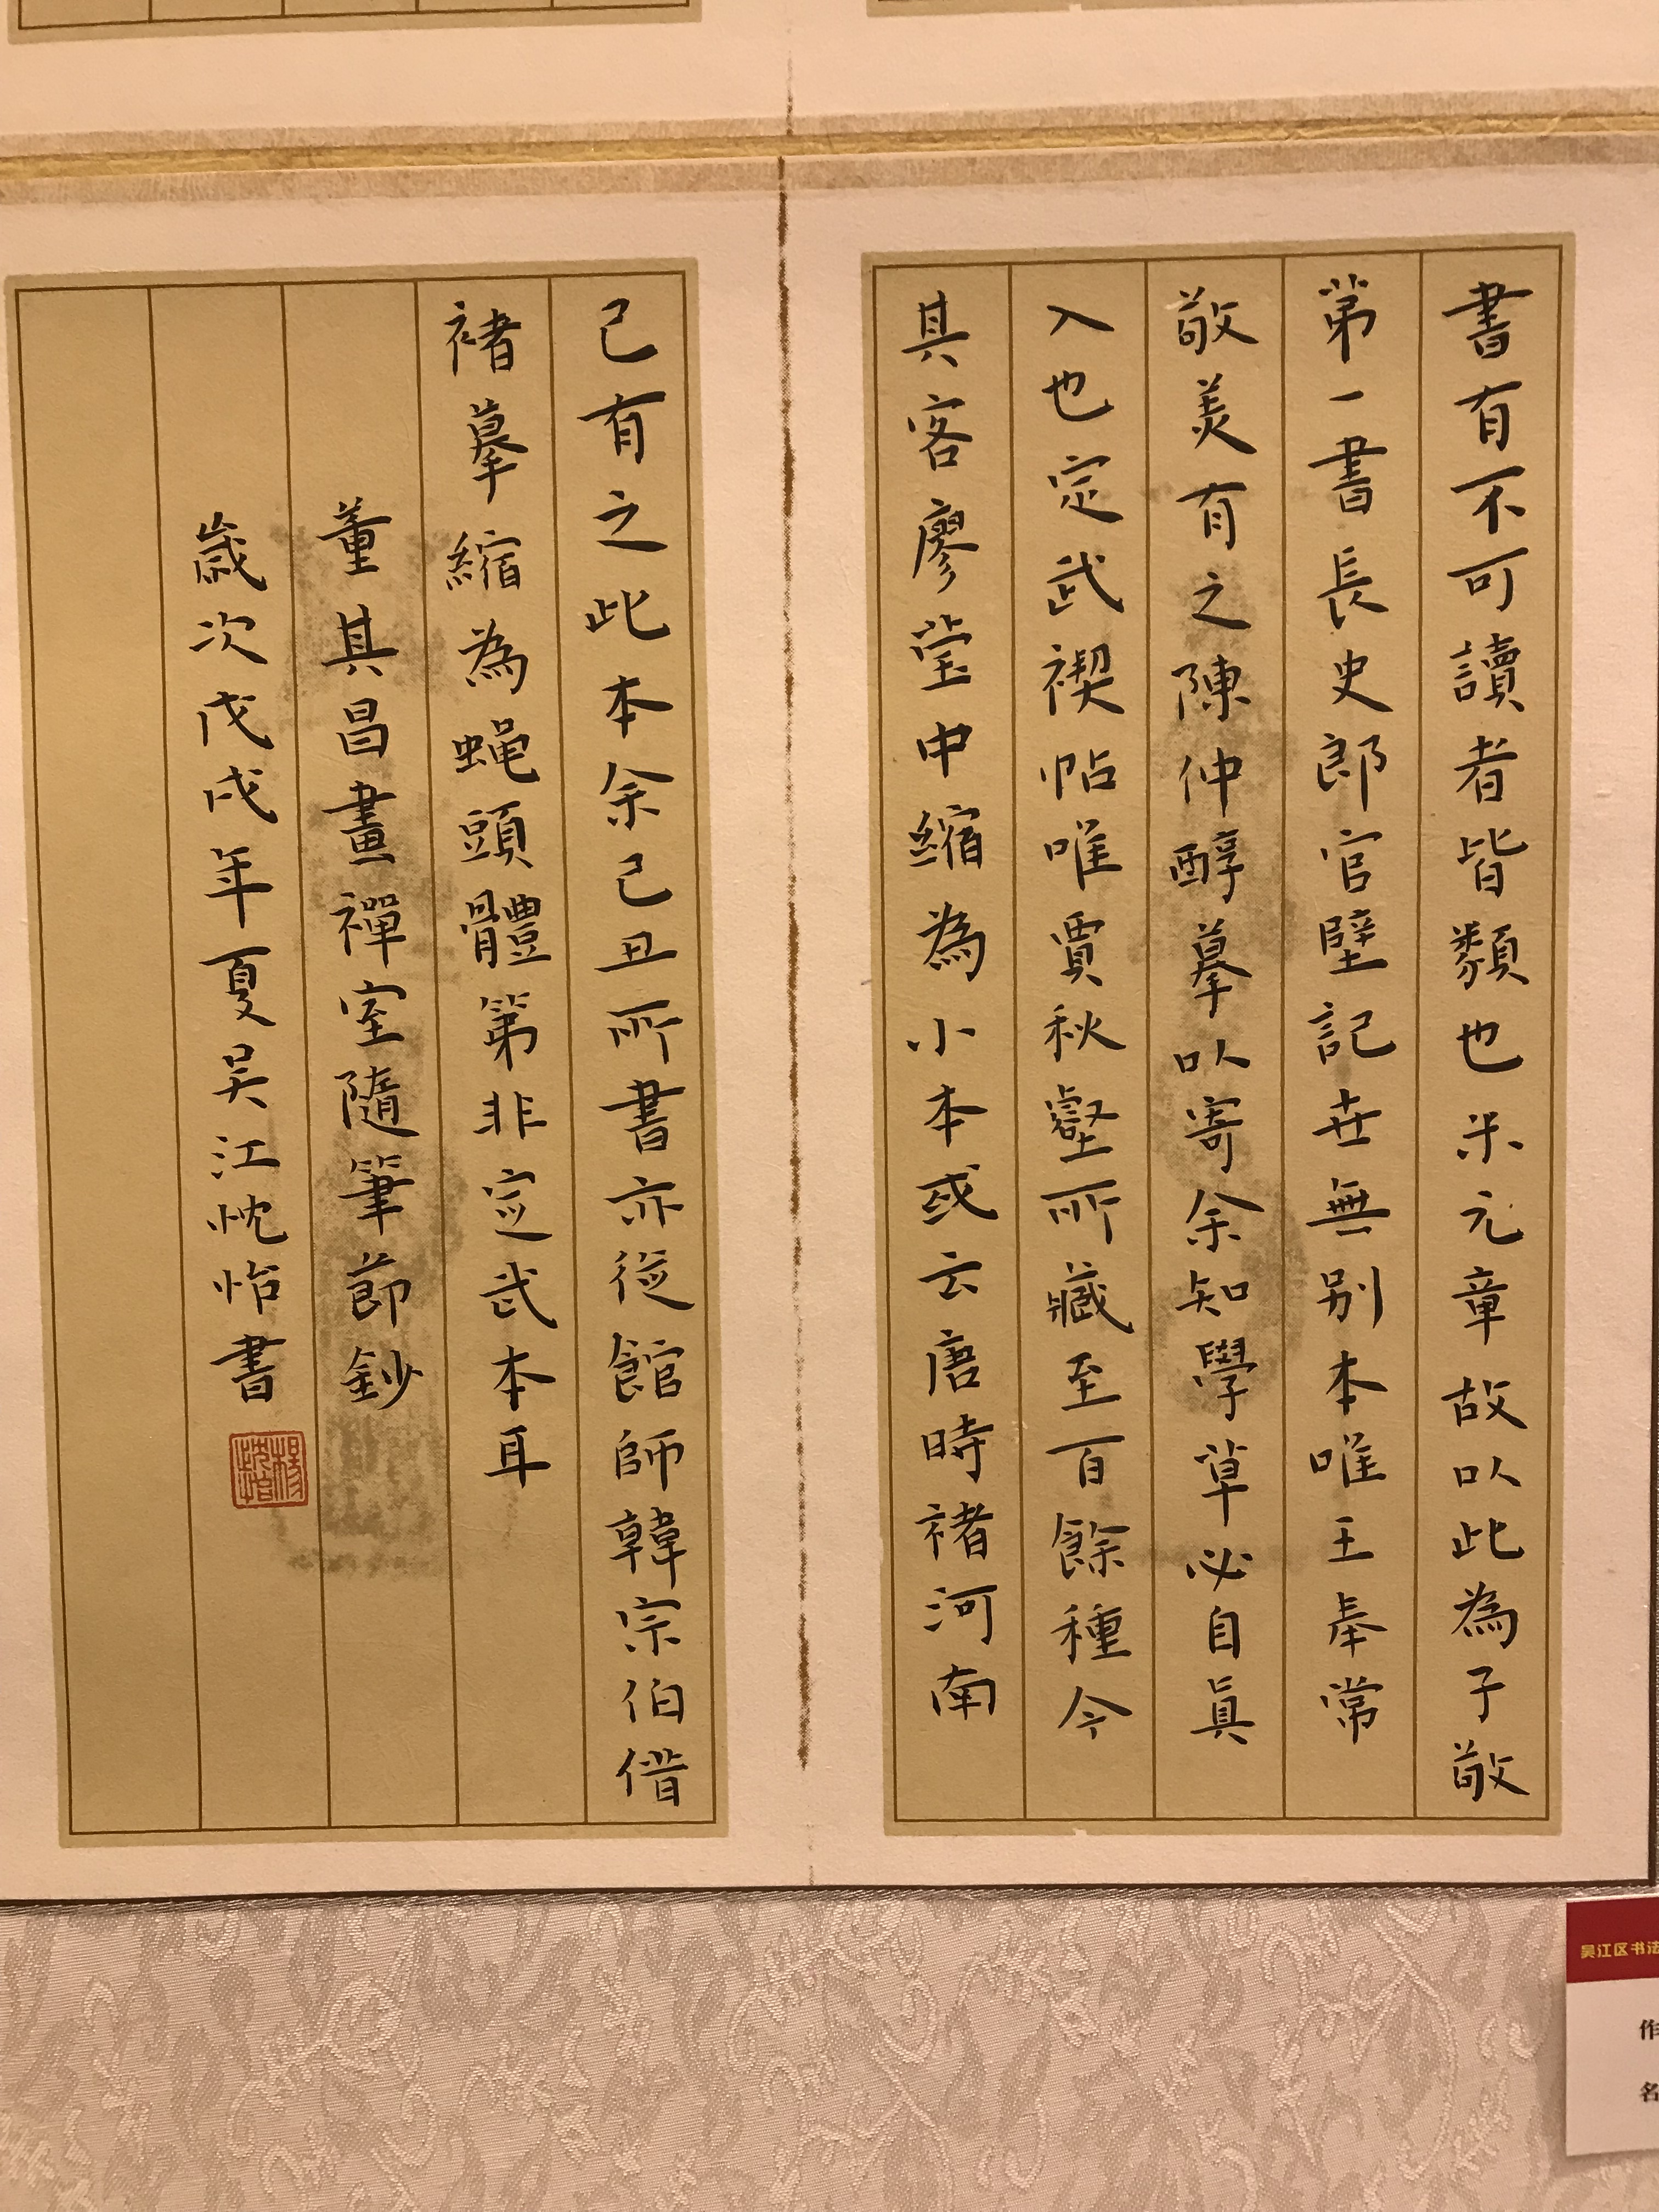 書有不可讀者皆纇也米元章故以此為子敬
第一書長史郎官壁記世無別本唯王奉常
敬美有之陳仲醇摹以寄余知學草必自真
入也定武禊帖唯賈秋壑所藏至百餘種今
其客廖瑩中縮為小本或云唐時褚河南
已有之此本余己丑所書亦從館師韓宗伯借
褚摹縮為蝇頭體第非定武本耳
董其昌畫禪室隨筆節鈔
歲次戊戌年夏吴江忱怡書
吴江区书法
作
名